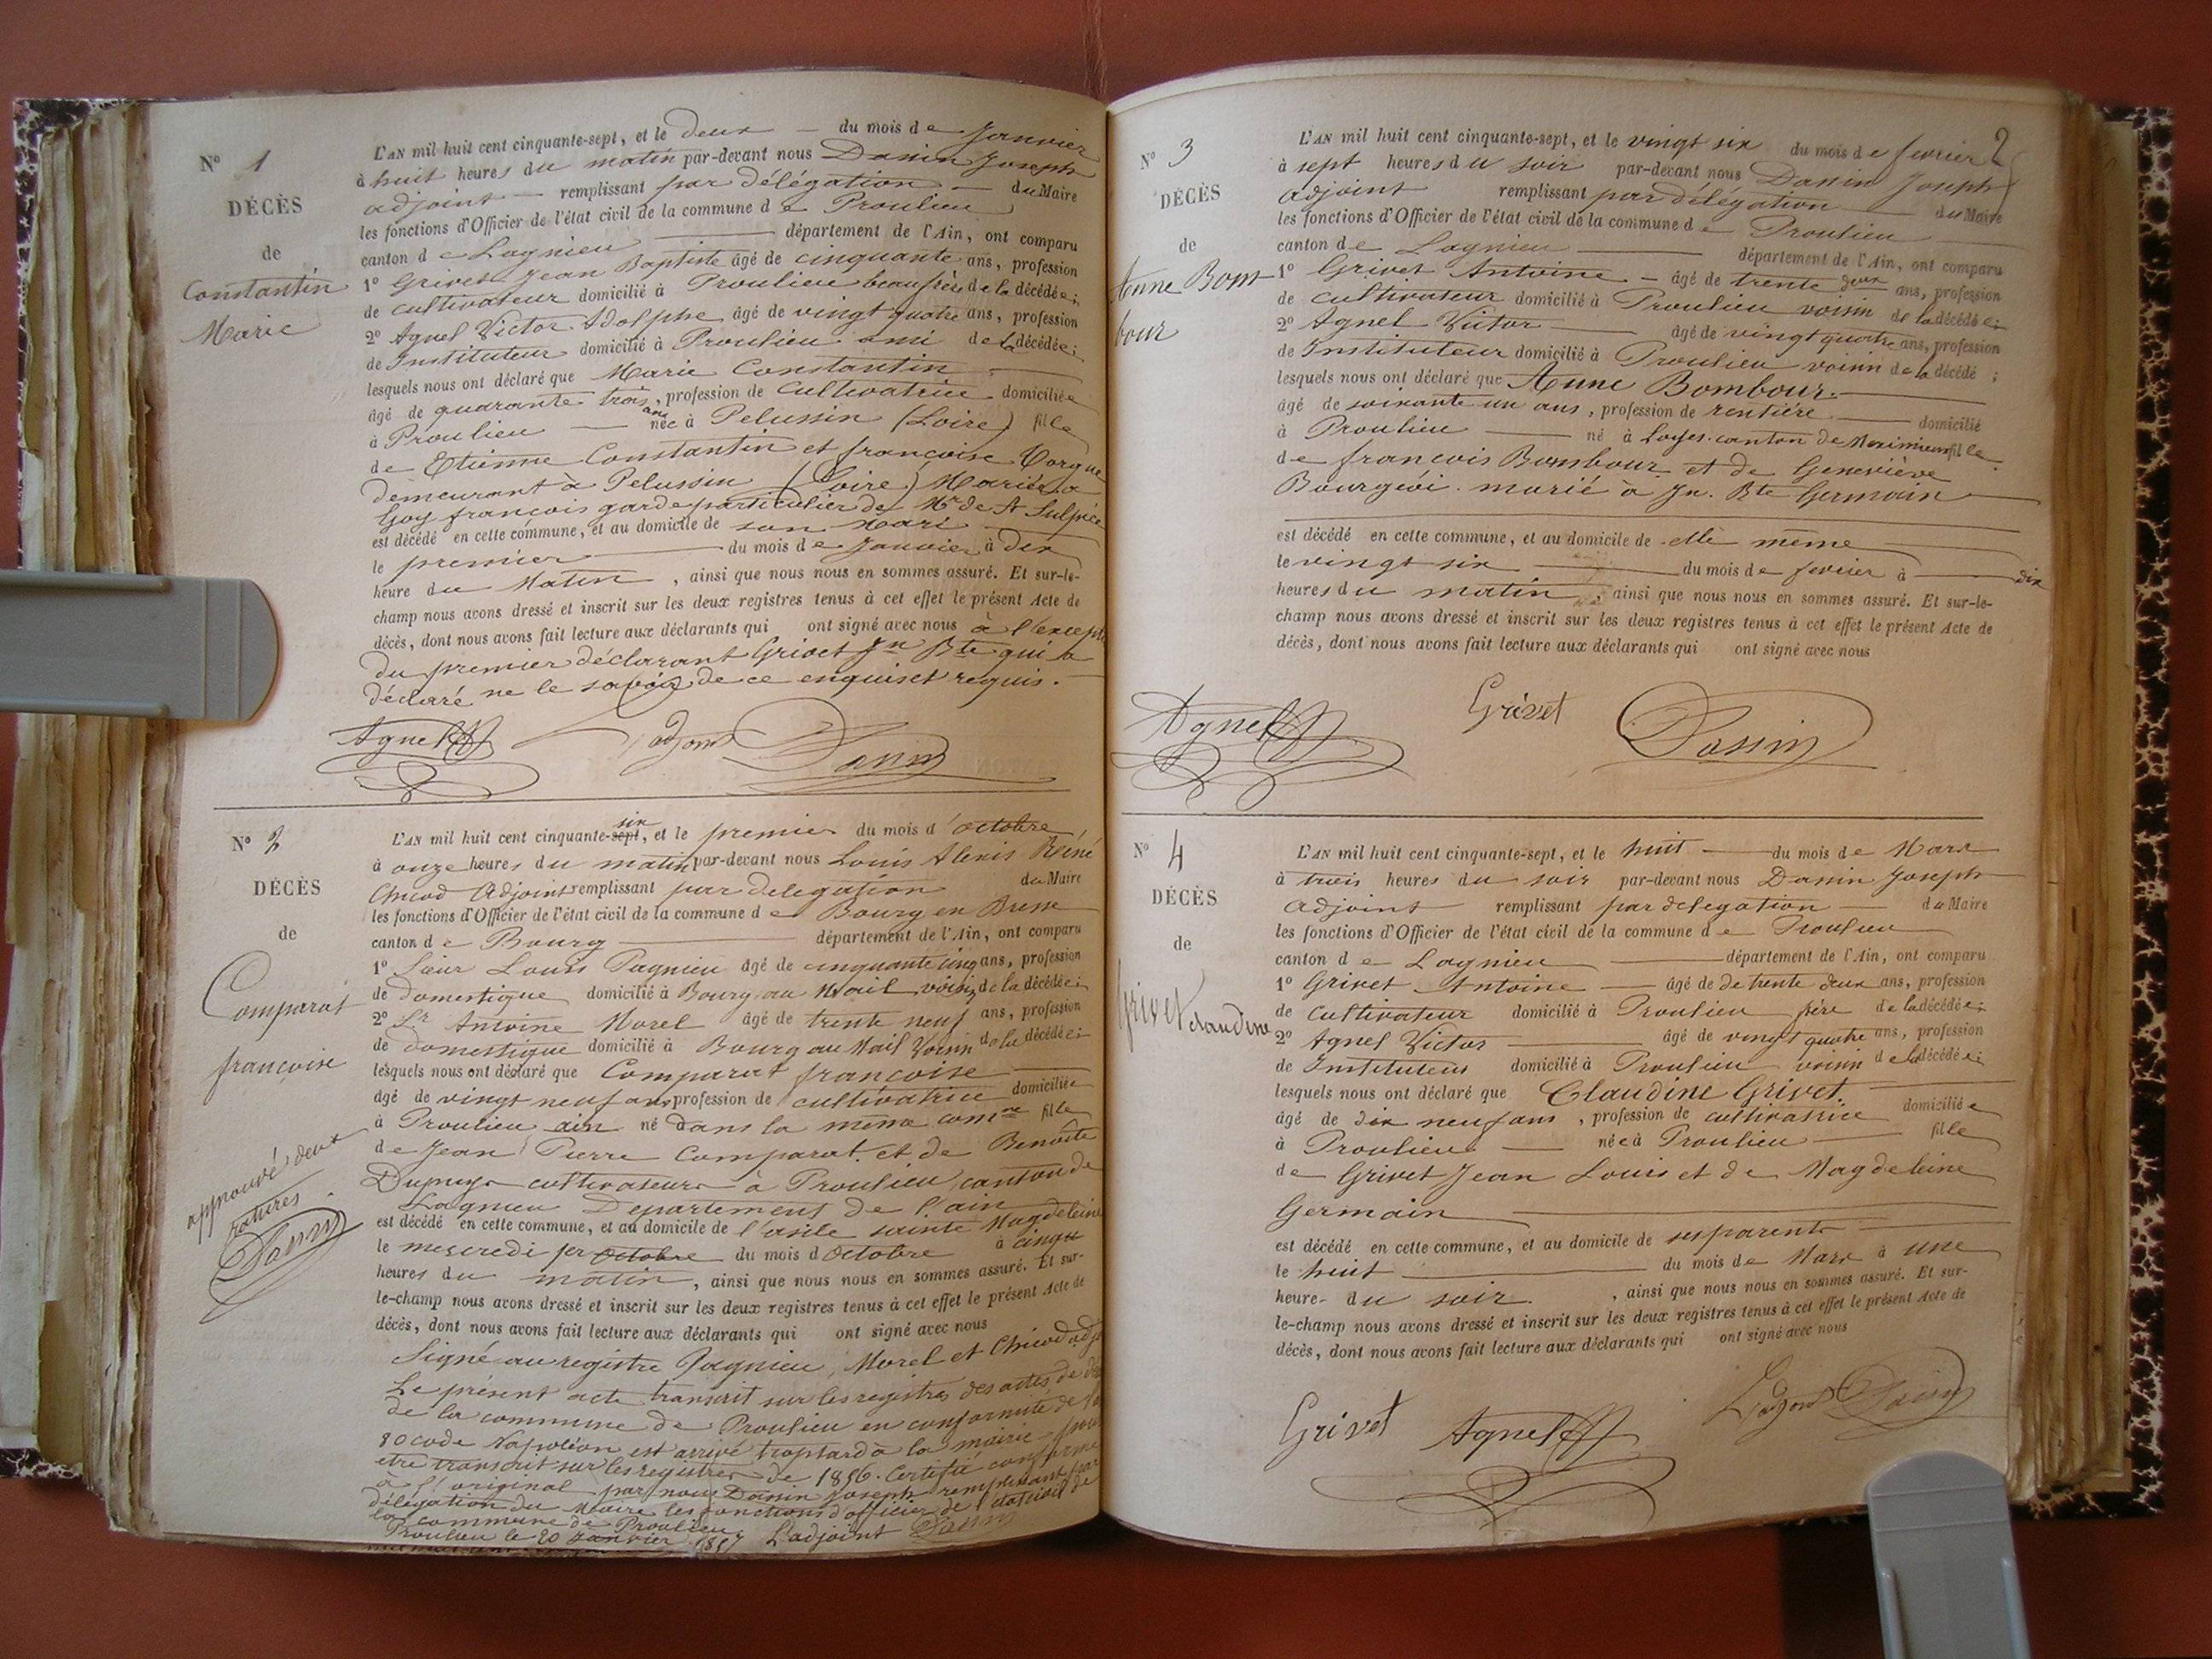 N° 1
DÉCÈS
de
Constantin
Marie
L'AN mil huit cent cinquante-sept, et le deux du mois de Janvier
à huit heures du matin par-devant nous Danin Joseph
adjoint remplissant par délégation du Maire
les fonctions d'Officier de l'état civil de la commune de Proulieu
canton de Lagnieu département de l'Ain, ont comparu
1° Grivet Jean Baptiste âgé de cinquante ans, profession
de cultivateur domicilié à Proulieu beaufrère de la décédée;
2° Agnel Victor Adolphe âgé de vingt quatre ans, profession
de Instituteur domicilié à Proulieu ami de la décédée;
lesquels nous ont déclaré que Marie Constantin
âgé de quarante trois ans, profession de Cultivatrice domiciliée
à Proulieu née à Pelussin (Loire) fille
de Etienne Constantin et françoise Corque
demeurant à Pelussin (Loire) Mariée à
Goy françois garde particulier de Mr de St Sulpice
est décédé en cette commune, et au domicile de son Mari
le premier du mois de Janvier à dix
heure du Matin, ainsi que nous nous en sommes assuré. Et sur-le-
champ nous avons dressé et inscrit sur les deux registres tenus à cet effet le présent Acte de
décès, dont nous avons fait lecture aux déclarants qui ont signé avec nous à l'excepti
du premier déclarant Grivet Jn Bte qui a
déclaré ne le savoir de ce enquis et requis.
Agnel adjoint Danin
N° 2
DÉCÈS
de
Comparat
françoise
approuvé deux
ratures
Danin
L'AN mil huit cent cinquante-sept six, et le premier du mois d'octobre
à onze heures du matin par-devant nous Louis Alexis Réné
Chicod Adjoint remplissant par delegation du Maire
les fonctions d'Officier de l'état civil de la commune de Bourg en Bresse
canton de Bourg département de l'Ain, ont comparu
1° Sieur Louis Pagnieu âgé de cinquante cinq ans, profession
de domestique domicilié à Bourg au Mail voisin de la décédée;
2° Sr Antoine Morel âgé de trente neuf ans, profession
de domestique domicilié à Bourg au Mail Voisin de la décédée;
lesquels nous ont déclaré que Comparat françoise
âgé de vingt neuf ans, profession de cultivatrice domiciliée
à Proulieu ain né dans la même comne fille
de Jean Pierre Comparat et de Benoite
Dupuys cultivateurs à Proulieu canton de
Lagnieu Departement de l'ain
est décédé en cette commune, et au domicile de l'asile sainte Magdeleine
le mercredi 1er octobre du mois d'Octobre à cinq
heures du matin, ainsi que nous nous en sommes assuré. Et sur-
le-champ nous avons dressé et inscrit sur les deux registres tenus à cet effet le présent Acte de
décès, dont nous avons fait lecture aux déclarants qui ont signé avec nous
Signé au registre Pagnieu, Morel et Chicod adjt
Le présent acte transcrit sur les registres des actes de
de la commune de Proulieu en conformité de
80 code Napoléon est arrivé trop tard à la mairie pour
etre transcrit sur les registres de 1856. Certifié conforme
à l'original par nous Danin Joseph remplissant par
délégation du Maire les fonctions d'officier de l'état civil de
la commune de Proulieu
Proulieu le 20 janvier 1857 L'adjoint Danin
2
N° 3
DÉCÈS
de
Anne Bom
bour
L'AN mil huit cent cinquante-sept, et le vingt six du mois de fevrier
à sept heures du soir par-devant nous Danin Joseph
adjoint remplissant par délégation du Maire
les fonctions d'Officier de l'état civil de la commune de Proulieu
canton de Lagnieu département de l'Ain, ont comparu
1° Grivet Antoine âgé de trente deux ans, profession
de cultivateur domicilié à Proulieu voisin de la décédée;
2° Agnel Victor âgé de vingt quatre ans, profession
de Instituteur domicilié à Proulieu voisin de la décédé;
lesquels nous ont déclaré que Anne Bombour
âgé de soixante un ans, profession de rentière domicilié
à Proulieu né à Loyes canton de Meximieux fille
de francois Bombour et de Geneviève
Bourgeoi marié à Jn. Bte Germain
est décédé en cette commune, et au domicile de elle même
le vingt six du mois de fevrier à dix
heures du matin, ainsi que nous nous en sommes assuré. Et sur-le-
champ nous avons dressé et inscrit sur les deux registres tenus à cet effet le présent Acte de
décès, dont nous avons fait lecture aux déclarants qui ont signé avec nous
Agnel Grivet Danin
N° 4
DÉCÈS
de
Grivet
claudine
L'AN mil huit cent cinquante-sept, et le huit du mois de Mars
à trois heures du soir par-devant nous Danin Joseph
adjoint remplissant par délégation du Maire
les fonctions d'Officier de l'état civil de la commune de Proulieu
canton de Lagnieu département de l'Ain, ont comparu
1° Grivet Antoine âgé de de trente deux ans, profession
de Cultivateur domicilié à Proulieu frère de la décédée;
2° Agnel Victor âgé de vingt quatre ans, profession
de Instituteur domicilié à Proulieu voisin de la décédée;
lesquels nous ont déclaré que Claudine Grivet
âgé de dix neuf ans, profession de cultivatrice domiciliée
à Proulieu née à Proulieu fille
de Grivet Jean Louis et de Magdeleine
Germain
est décédé en cette commune, et au domicile de ses parents
le huit du mois de Mars à une
heure du soir, ainsi que nous nous en sommes assuré. Et sur-
le-champ nous avons dressé et inscrit sur les deux registres tenus à cet effet le présent Acte de
décès, dont nous avons fait lecture aux déclarants qui ont signé avec nous
Grivet Agnel L'adjoint Danin